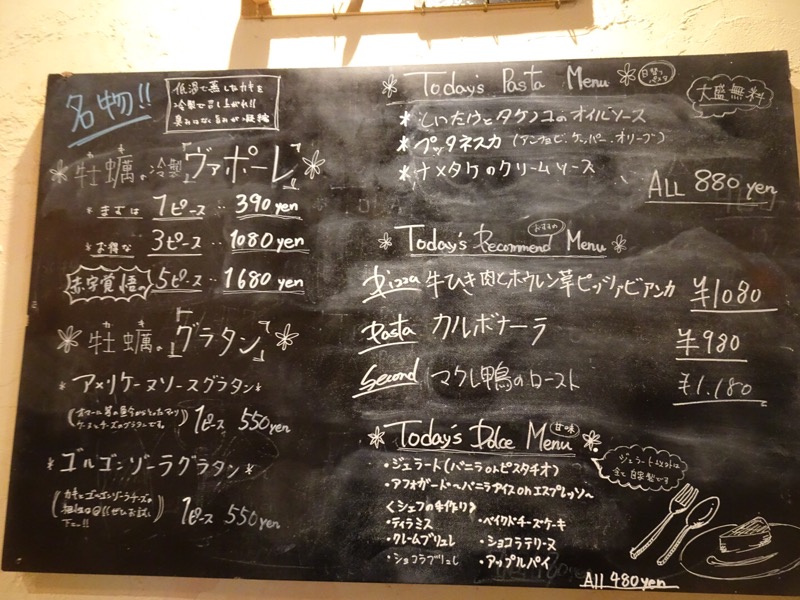 名物!!
低温で蒸したカキを
冷製で召し上がれ!!
臭みはない旨みが凝縮
牡蠣の冷製「ヴァポーレ」
カキ
*まずは 1ピース‥390yen
*お得な 3ピース‥1080yen
赤字覚悟の 5ピース‥1680yen
牡蠣の「グラタン」
カキ
*アメリケーヌソースグラタン*
1ピース 550yen
*ゴルゴンゾーラグラタン*
(カキとゴルゴンゾーラチーズの
相性は◎!!ぜひお試し
下さい!!)
1ピース 550yen
Today's Pasta Menu
日替りパスタ
大盛無料
*しいたけとタケノコのオイルソース
*プッタネスカ(アンチョビ.ケッパー.オリーブ)
*ナメタケのクリームソース
ALL 880yen
Today's Recommend Menu
おすすめ
Pizza 牛ひき肉とホウレン草ピッツァビアンカ ¥1080
Pasta カルボナーラ ¥980
Second マグレ鴨のロースト ¥1.180
Today's Dolce Menu
甘味
ジェラート以外は
全て自家製です
・ジェラート(バニラorピスタチオ)
・アフォガード~バニラアイスonエスプレッソ~
<シェフの手作り>
・ティラミス ・ベイクドチーズケーキ
・クレームブリュレ ・ショコラテリーヌ
・ショコラブリュレ ・アップルパイ
All 480yen